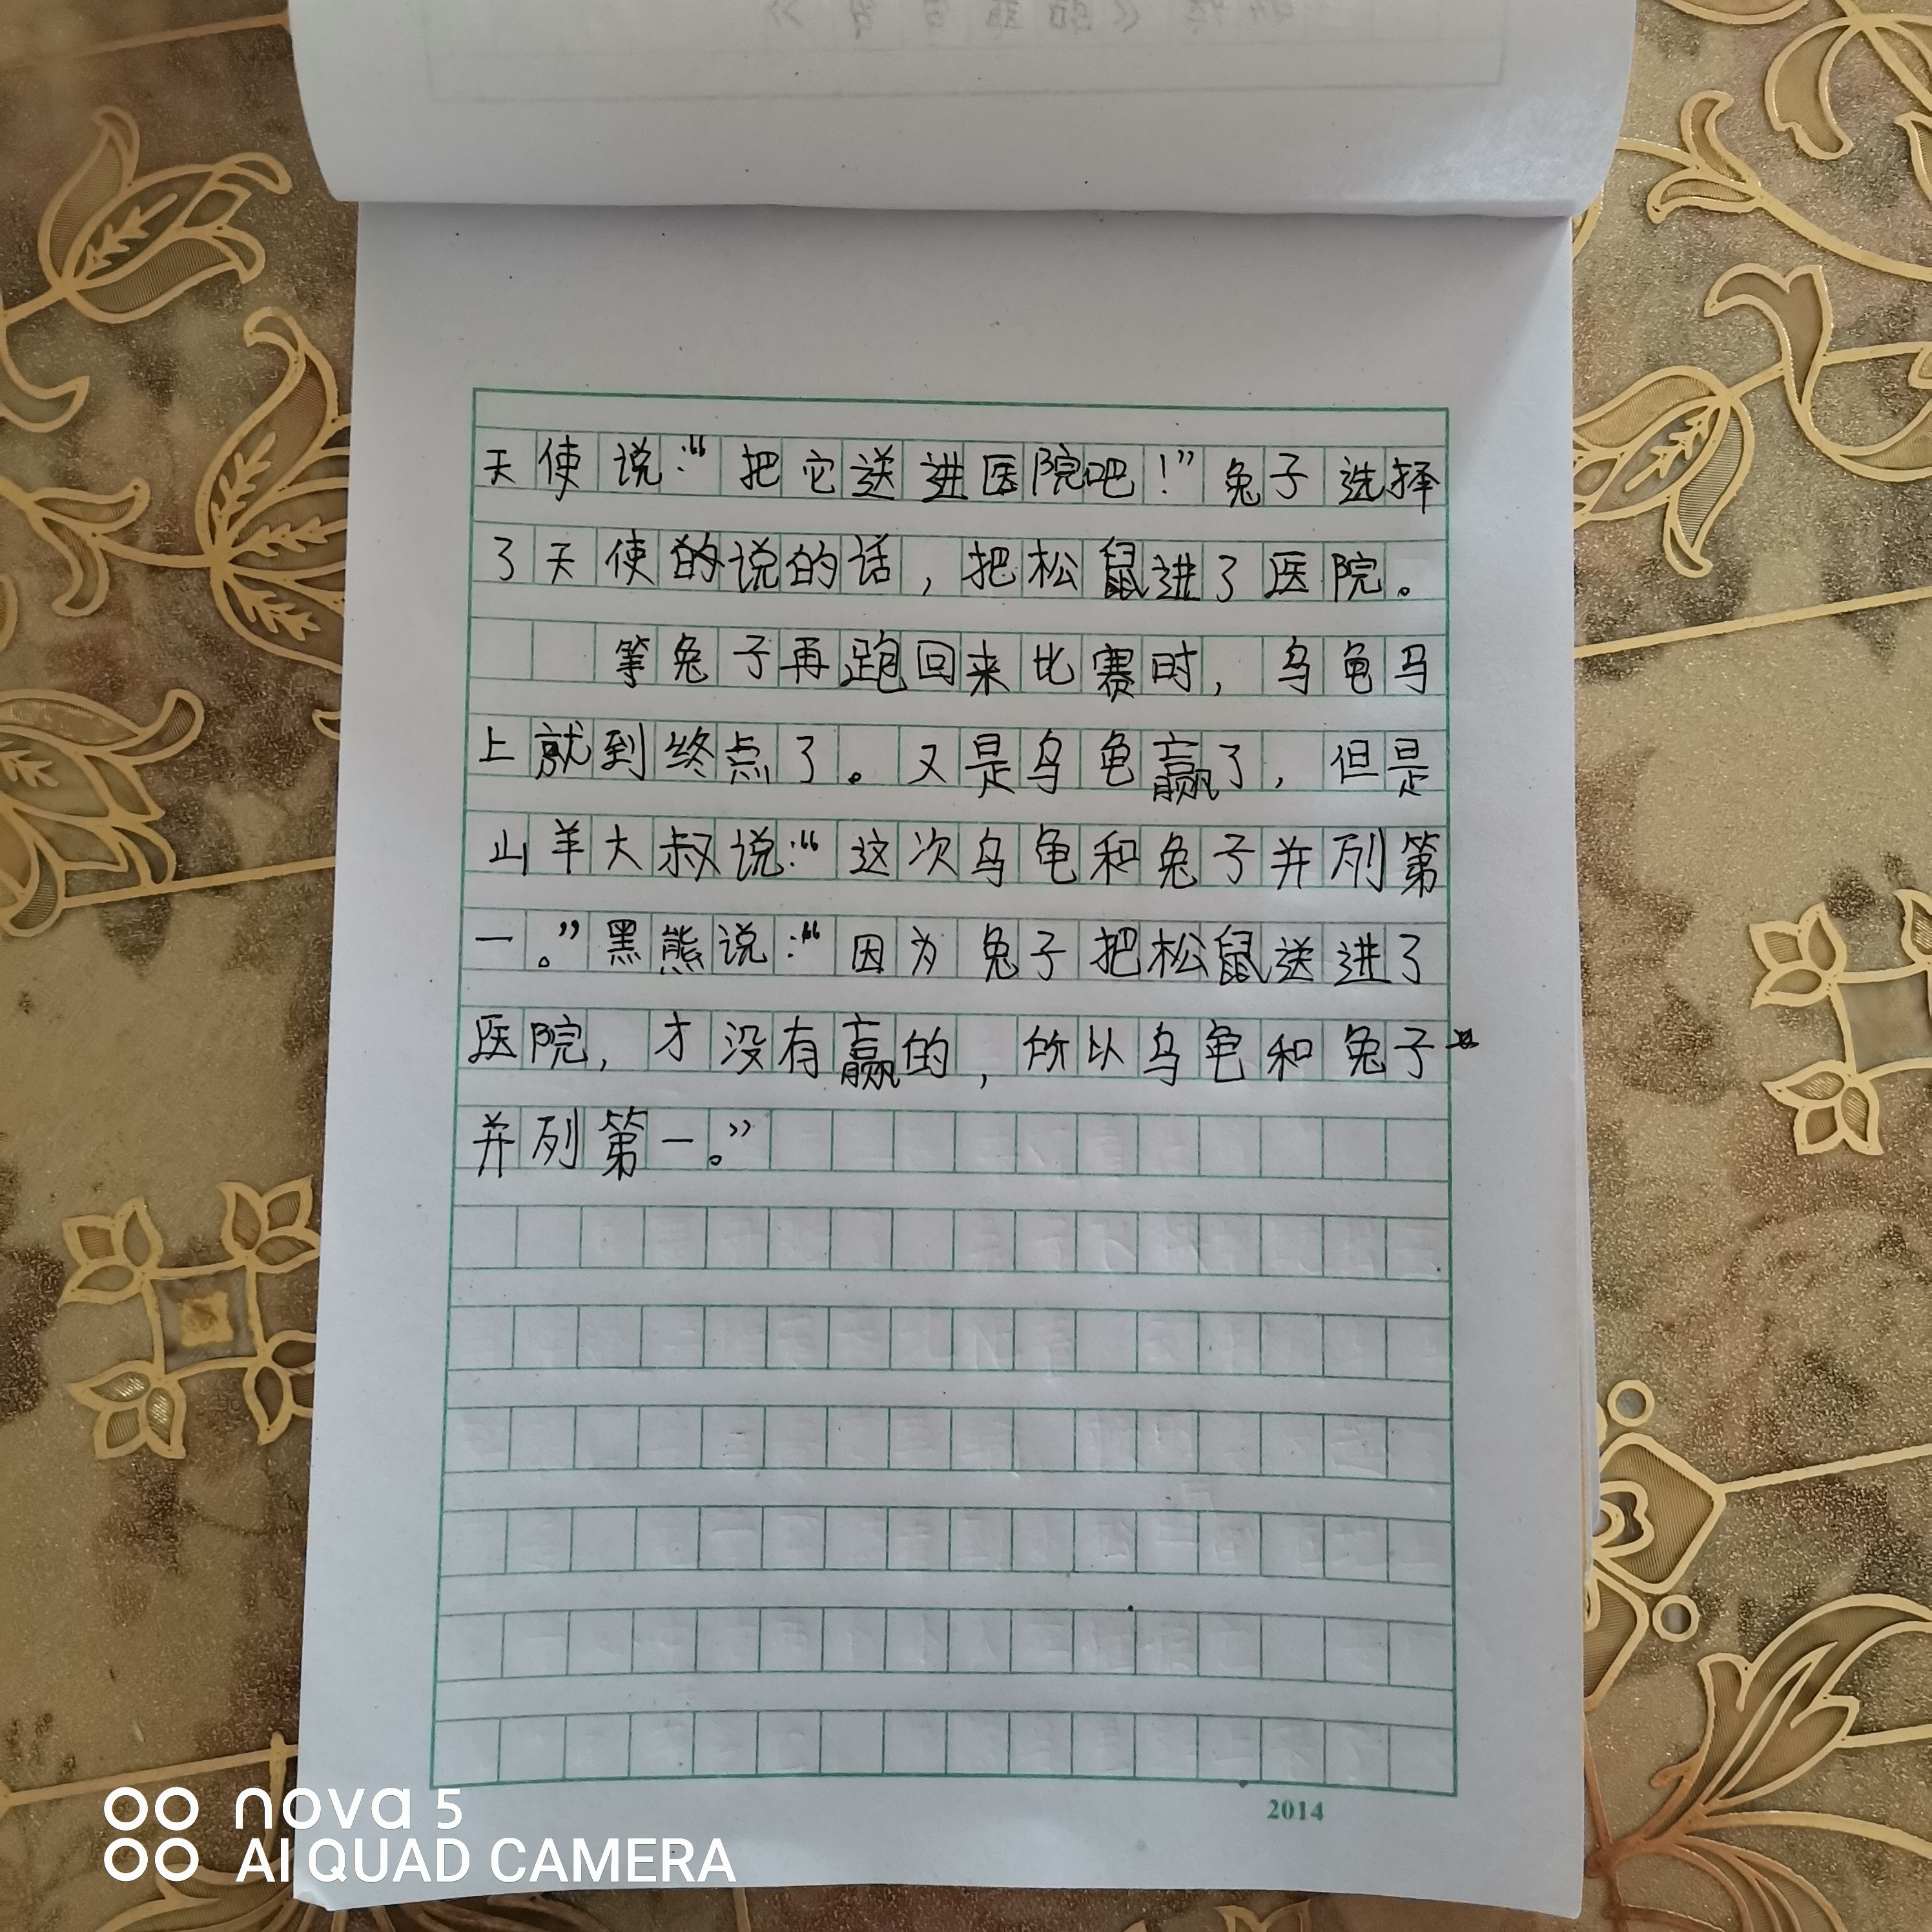 天使说：“把它送进医院吧！”兔子选择
了天使的说的话，把松鼠进了医院。
等兔子再跑回来比赛时，乌龟马
上就到终点了。又是乌龟赢了，但是
山羊大叔说：“这次乌龟和兔子并列第
一。”黑熊说：“因为兔子把松鼠送进了
医院，才没有赢的，所以乌龟和兔子
并列第一。”
2014
nova 5
AI QUAD CAMERA